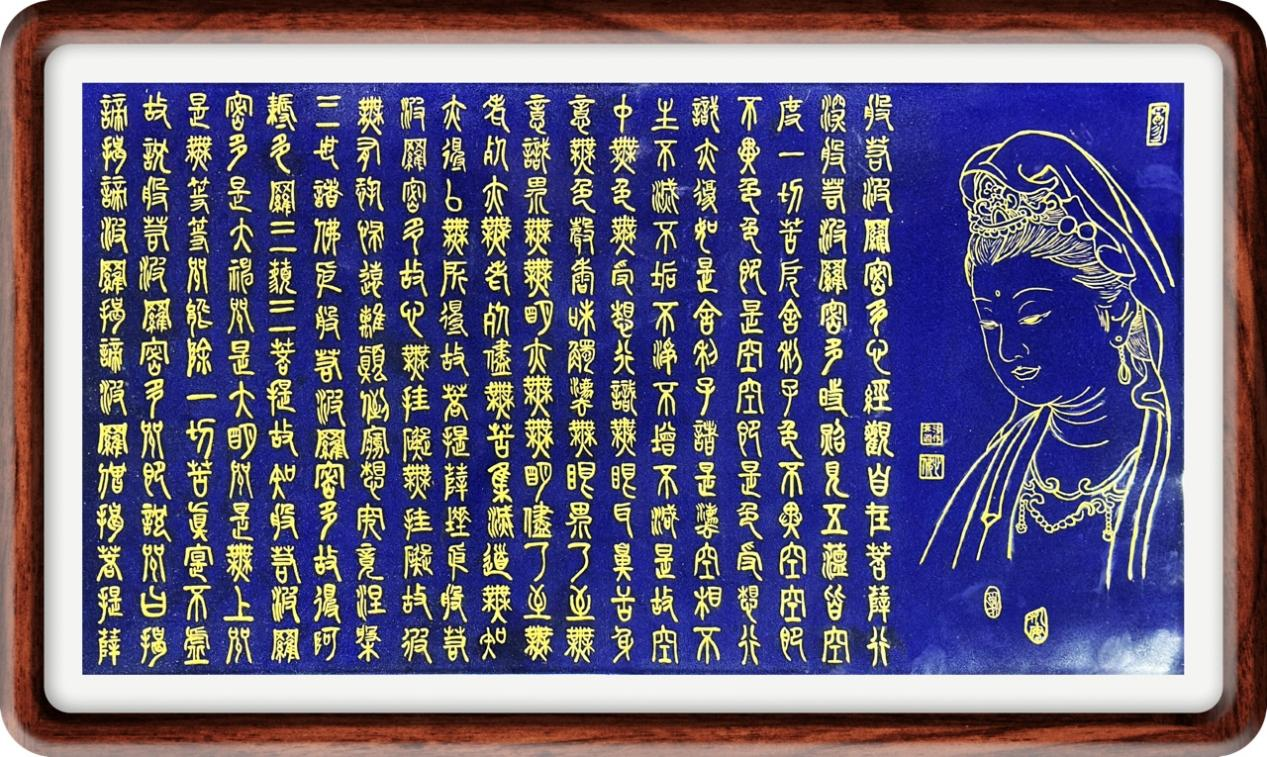 般若波羅密多心經觀自在菩薩行
深般若波羅密多時照見五蘊皆空
度一切苦厄舍利子色不異空空即
不異色色即是空空即是色受想行
識亦復如是舍利子諸是灋空相不
生不滅不垢不淨不增不減是故空
中無色無受想行識無眼耳鼻舌身
意無色聲香味觸灋無眼界乃至無
意識界無無明亦無無明盡乃至無
老死亦無老死盡無苦集滅道無知
亦得以無所得故菩提薩埵依般若
波羅密多故心無挂礙無挂礙故
無有恐怖遠離顛倒夢想究竟涅槃
三世諸佛依般若波羅密多故得阿
耨多羅三藐三菩提故知般若波羅
密多是大神咒是大明咒是無上咒
是無等等咒能除一切苦真實不虛
故說般若波羅密多咒即說咒曰揭
諦揭諦波羅揭諦波羅僧揭菩提薩